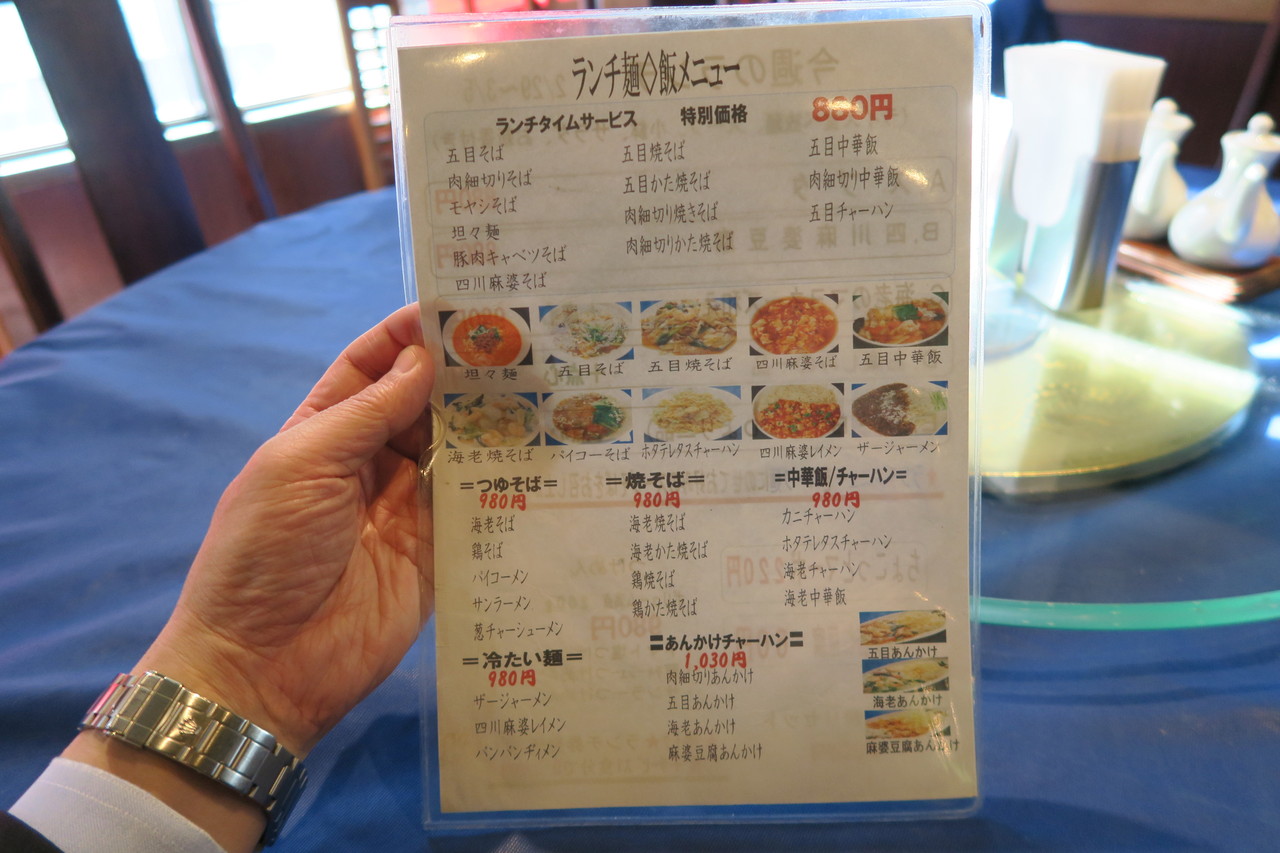 ランチ麺◇飯メニュー
ランチタイムサービス 特別価格 880円
五目そば
肉細切りそば
モヤシそば
坦々麺
豚肉キャベツそば
四川麻婆そば
五目焼そば
五目かた焼そば
肉細切り焼きそば
肉細切りかた焼そば
五目中華飯
肉細切り中華飯
五目チャーハン
坦々麺 五目そば 五目焼そば 四川麻婆そば 五目中華飯
海老焼そば パイコーそば ホタテレタスチャーハン 四川麻婆レイメン ザージャーメン
=つゆそば=
980円
海老そば
鶏そば
パイコーメン
サンラーメン
葱チャーシューメン
=焼そば=
980円
海老焼そば
海老かた焼そば
鶏焼そば
鶏かた焼そば
=中華飯/チャーハン=
980円
カニチャーハン
ホタテレタスチャーハン
海老チャーハン
海老中華飯
=冷たい麺=
980円
ザージャーメン
四川麻婆レイメン
バンバンヂィメン
=あんかけチャーハン=
1,030円
肉細切りあんかけ
五目あんかけ
海老あんかけ
麻婆豆腐あんかけ
五目あんかけ
海老あんかけ
麻婆豆腐あんかけ